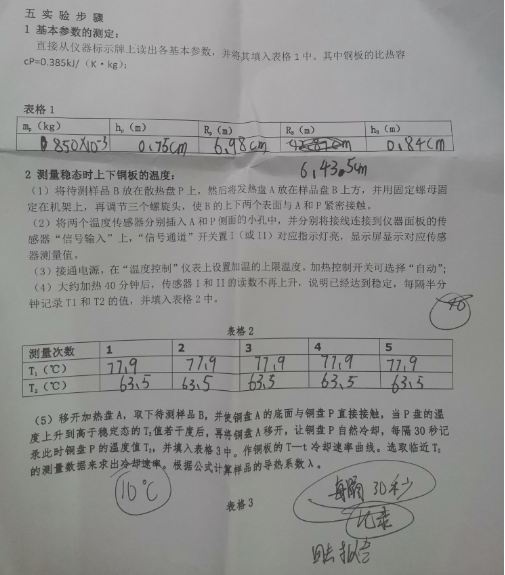 五 实 验 步 骤
1 基本参数的测定：
直接从仪器标示牌上读出各基本参数，并将其填入表格 1 中。其中铜板的比热容
cP=0.385kJ/（K·kg）；
表格 1
m（kg） h（m） R（m） R（m） h（m）
850X10-3 0.75cm 6.98cm 0.84cm
6.43.5cm
2 测量稳态时上下铜板的温度：
（1）将待测样品 B 放在散热盘 P 上，然后将发热盘 A 放在样品盘 B 上方，并用固定螺母固
定在机架上，再调节三个螺旋头，使 B 的上下两个表面与 A 和 P 紧密接触。
（2）将两个温度传感器分别插入 A 和 P 侧面的小孔中，并分别将接线连接到仪器面板的传
感器“信号输入”上，“信号通道”开关置 I（或 II）对应指示灯亮，显示屏显示对应传感
器测量值。
（3）接通电源，在“温度控制”仪表上设置加温的上限温度。加热控制开关可选择“自动”；
（4）大约加热 40 分钟后，传感器 I 和 II 的读数不再上升，说明已经达到稳定，每隔半分
钟记录 T1 和 T2 的值，并填入表格 2 中。
40
表格 2
测量次数 1 2 3 4 5
T₁（℃） 77.9 77.9 77.9 77.9 77.9
T₂（℃） 63.5 63.5 63.5 63.5 63.5
（5）移开加热盘 A，取下待测样品 B，并使铜盘 A 的底面与铜盘 P 直接接触，当 P 盘的温
度上升到高于稳定态的 T₂值若干度后，再将铜盘 A 移开，让铜盘 P 自然冷却，每隔 30 秒记
录此时铜盘 P 的温度值 T₂，并填入表格 3 中。作铜板的 T—t 冷却速率曲线。选取临近 T₂
的测量数据来求出冷却速率。根据公式计算样品的导热系数 λ。
10℃
每隔30秒
表格 3
记录